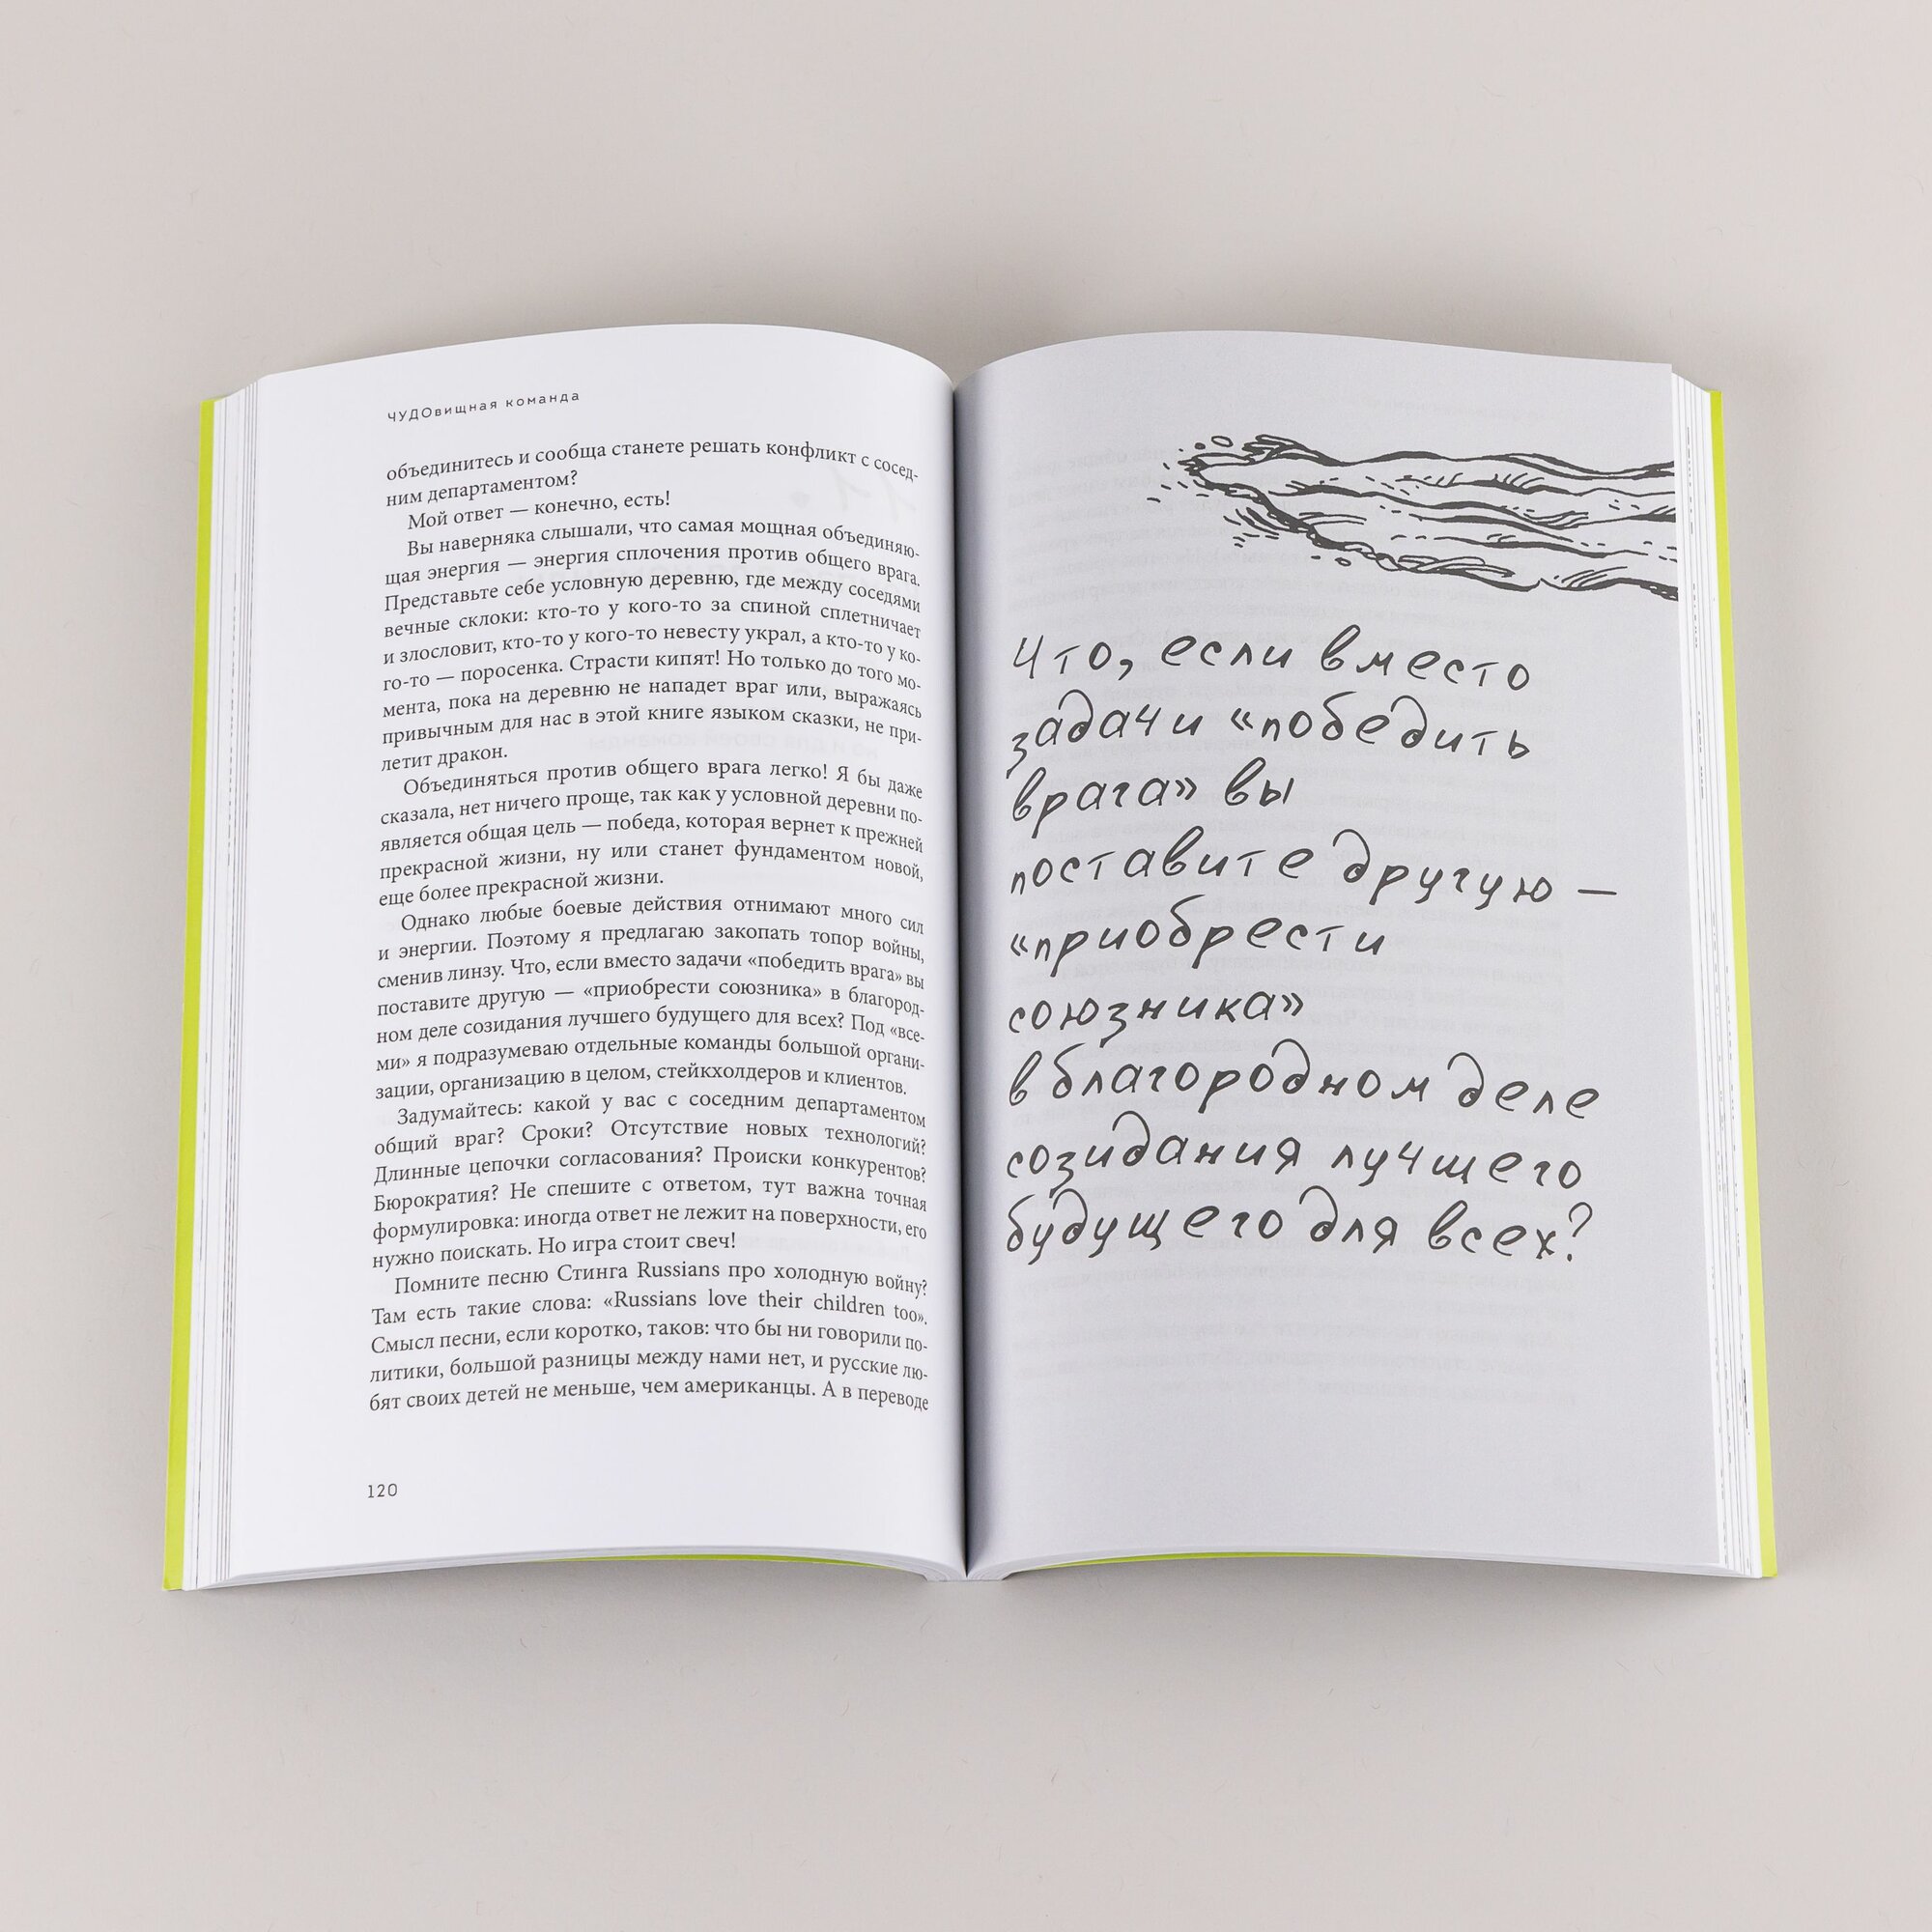 ЧУДОвищная команда
объединитесь и сообща станете решать конфликт с сосед-
ним департаментом?
Мой ответ — конечно, есть!
Вы наверняка слышали, что самая мощная объединяю-
щая энергия — энергия сплочения против общего врага.
Представьте себе условную деревню, где между соседями
вечные склоки: кто-то у кого-то за спиной сплетничает
и злословит, кто-то у кого-то невесту украл, а кто-то у ко-
го-то — поросенка. Страсти кипят! Но только до того мо-
мента, пока на деревню не нападет враг или, выражаясь
привычным для нас в этой книге языком сказки, не при-
летит дракон.
Объединяться против общего врага легко! Я бы даже
сказала, нет ничего проще, так как у условной деревни по-
является общая цель — победа, которая вернет к прежней
прекрасной жизни, ну или станет фундаментом новой,
еще более прекрасной жизни.
Однако любые боевые действия отнимают много сил
и энергии. Поэтому я предлагаю закопать топор войны,
сменив линзу. Что, если вместо задачи «победить врага» вы
поставите другую — «приобрести союзника» в благород-
ном деле созидания лучшего будущего для всех? Под «все-
ми» я подразумеваю отдельные команды большой органи-
зации, организацию в целом, стейкхолдеров и клиентов.
Задумайтесь: какой у вас с соседним департаментом
общий враг? Сроки? Отсутствие новых технологий?
Длинные цепочки согласования? Происки конкурентов?
Бюрократия? Не спешите с ответом, тут важна точная
формулировка: иногда ответ не лежит на поверхности, его
нужно поискать. Но игра стоит свеч!
Помните песню Стинга Russians про холодную войну?
Там есть такие слова: «Russians love their children too».
Смысл песни, если коротко, таков: что бы ни говорили по-
литики, большой разницы между нами нет, и русские лю-
бят своих детей не меньше, чем американцы. А в переводе
120
Что, если вместо
задачи «победить
врага» вы
поставите другую —
«приобрести
союзника»
в благородном деле
созидания лучшего
будущего для всех?